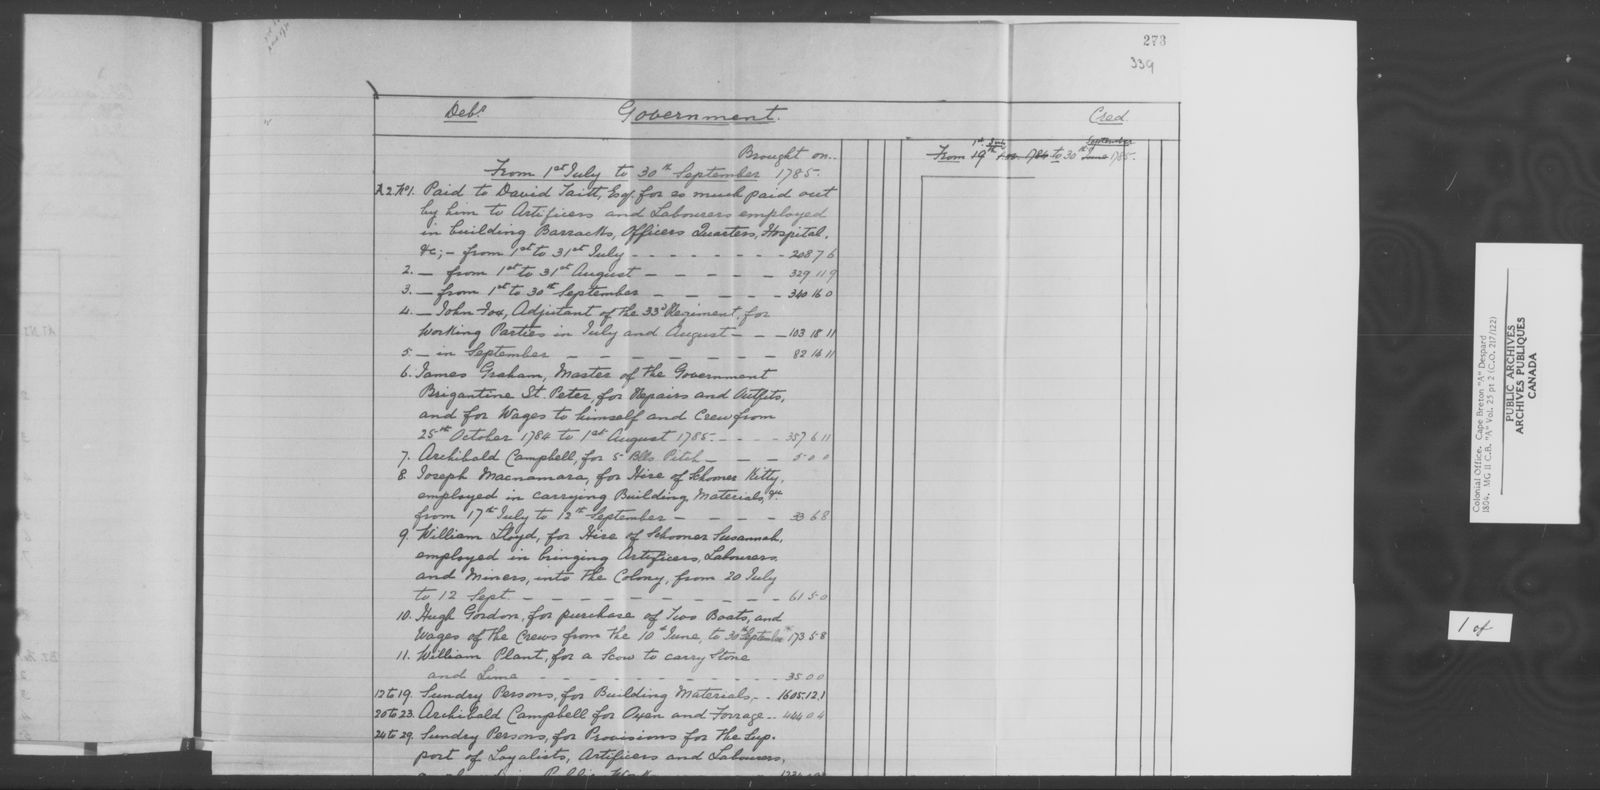 273
339
Debr. Government. Cred
Brought on..
From 1st July to 30th September 1785.
From 19th Nov. 1784 to 30th June 1785.
1st July
September
A2 No1. Paid to David Taitt, Esq. for so much paid out
by him to Artificers and Labourers employed
in building Barracks, Officers Quarters, Hospital,
&c; - from 1st to 31st July - - - - - - - - 208 7 6
2. — from 1st to 31st August - - - - - 329 11 9
3. — from 1st to 30th September - - - - - 340 16 0
4. — John Fox, Adjutant of the 33d Regiment, for
Working Parties in July and August - - - 103 18 11
5. — in September - - - - - - - 82 14 11
6. James Graham, Master of the Government
Brigantine St. Peter, for Repairs and Outfits,
and for Wages to himself and Crew from
25th October 1784 to 1st August 1785 - - - - 357 6 11
7. Archibald Campbell, for 5 Blls Pitch - - - 5 0 0
8. Joseph Macnamara, for Hire of Schooner Kitty,
employed in carrying Building Materials, &c
from 17th July to 12th September - - - - 33 6 8
9. William Lloyd, for Hire of Schooner Susannah,
employed in bringing Artificers, Labourers
and Miners, into the Colony, from 20 July
to 12 Sept. - - - - - - - - - - 61 5 0
10. Hugh Gordon, for purchase of Two Boats, and
Wages of the Crews from the 10th June, to 30th September 173 5 8
11. William Plant, for a Scow to carry Stone
and Lime - - - - - - - - - 35 0 0
12 to 19. Sundry Persons, for Building Materials - - 1605.12.1
20 to 23. Archibald Campbell for Oxen and Forrage - - 444 0 4
24 to 29. Sundry Persons, for Provisions for the Sup-
port of Loyalists, Artificers and Labourers,
Colonial Office. Cape Breton "A" Despard
1804. MG 11 C.B. "A" Vol. 25 pt 2 (C.O. 217/122)
PUBLIC ARCHIVES
ARCHIVES PUBLIQUES
CANADA
1 of